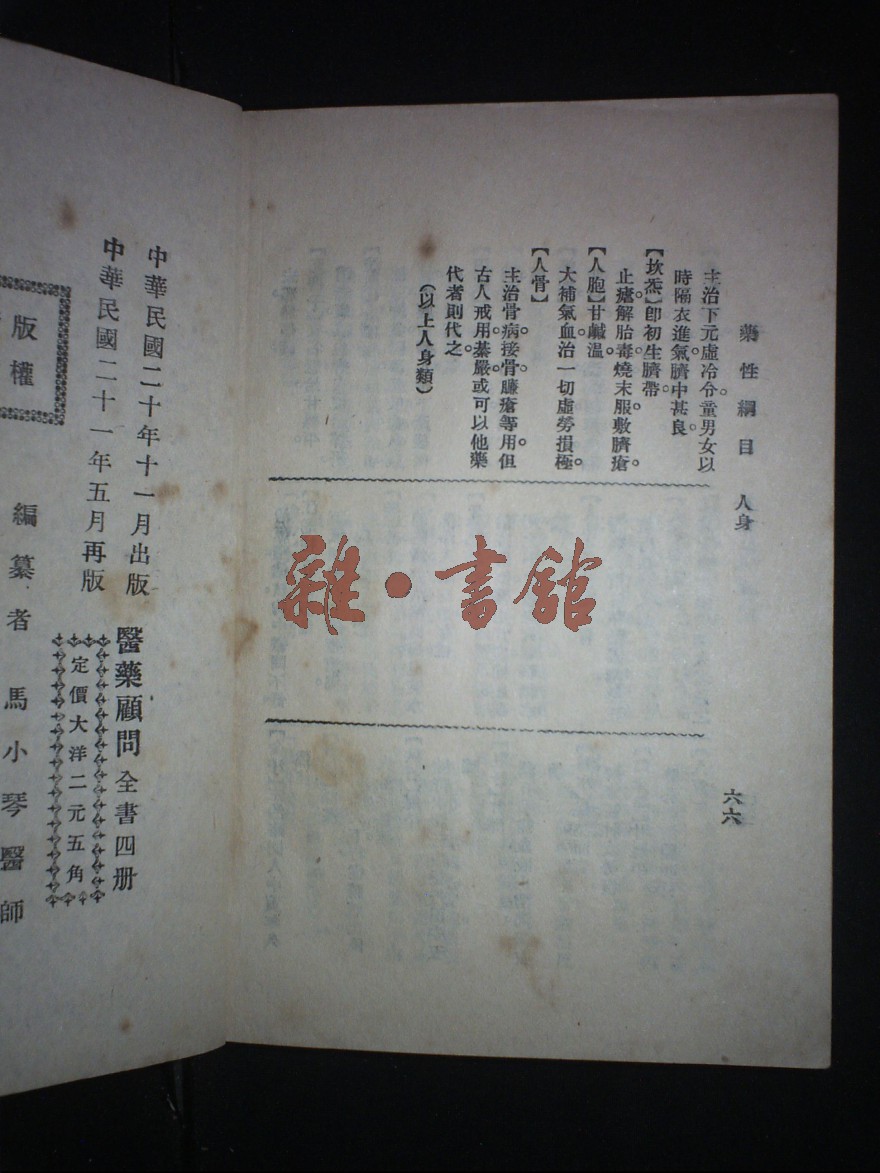 藥性綱目 人身
主治下元虛冷。令童男女以
時隔衣進氣臍中甚良。
【坎炁】卽初生臍帶。
止瘧解胎毒燒末服敷臍瘡
【人胞】甘鹹溫。
大補氣血治一切虛勞損極。
【人骨】
主治骨病。接骨。臁瘡等用。但
古人戒用。綦嚴。或可以他藥
代者則代之
(以上人身類)
六六
雜·書館
中華民國二十年十一月出版
中華民國二十一年五月再版
醫藥顧問 全書四册
定價大洋二元五角
版權
編纂者 馬小琴醫師